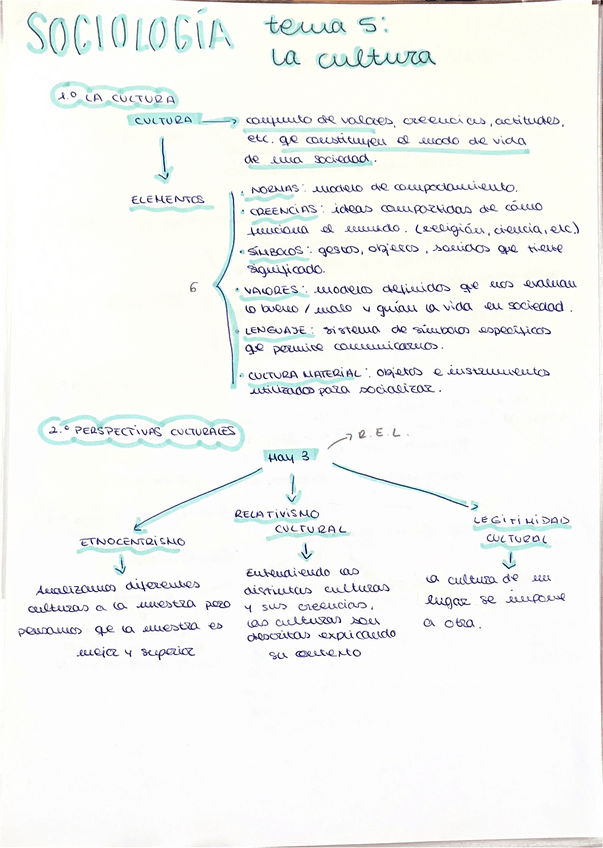 SOCIOLOGÍA tema 5:
la cultura
1.º LA CULTURA
CULTURA → conjunto de valores, creencias, actitudes,
etc. qe constituyen el modo de vida
de una sociedad.
ELEMENTOS
6
· NORMAS: modelo de comportamiento.
· CREENCIAS: ideas compartidas de cómo
funciona el mundo. (religión, ciencia, etc)
· SÍMBOLOS: gestos, objetos, sonidos que tiene
significado.
· VALORES: modelos definidos que nos evaluan
lo bueno / malo y guían la vida en sociedad.
· LENGUAJE: sistema de símbolos específicos
qe permite comunicarnos.
· CULTURA MATERIAL: objetos e instrumentos
utilizados para socializar.
2.º PERSPECTIVAS CULTURALES
HAY 3 → R.E.L.
ETNOCENTRISMO
Analizamos diferentes
culturas a la nuestra pero
pensamos qe la nuestra es
mejor y superior
RELATIVISMO
CULTURAL
Entendiendo las
distintas culturas
y sus creencias,
las culturas son
descritas explicando
su contexto
LEGITIMIDAD
CULTURAL
la cultura de un
lugar se impone
a otra.